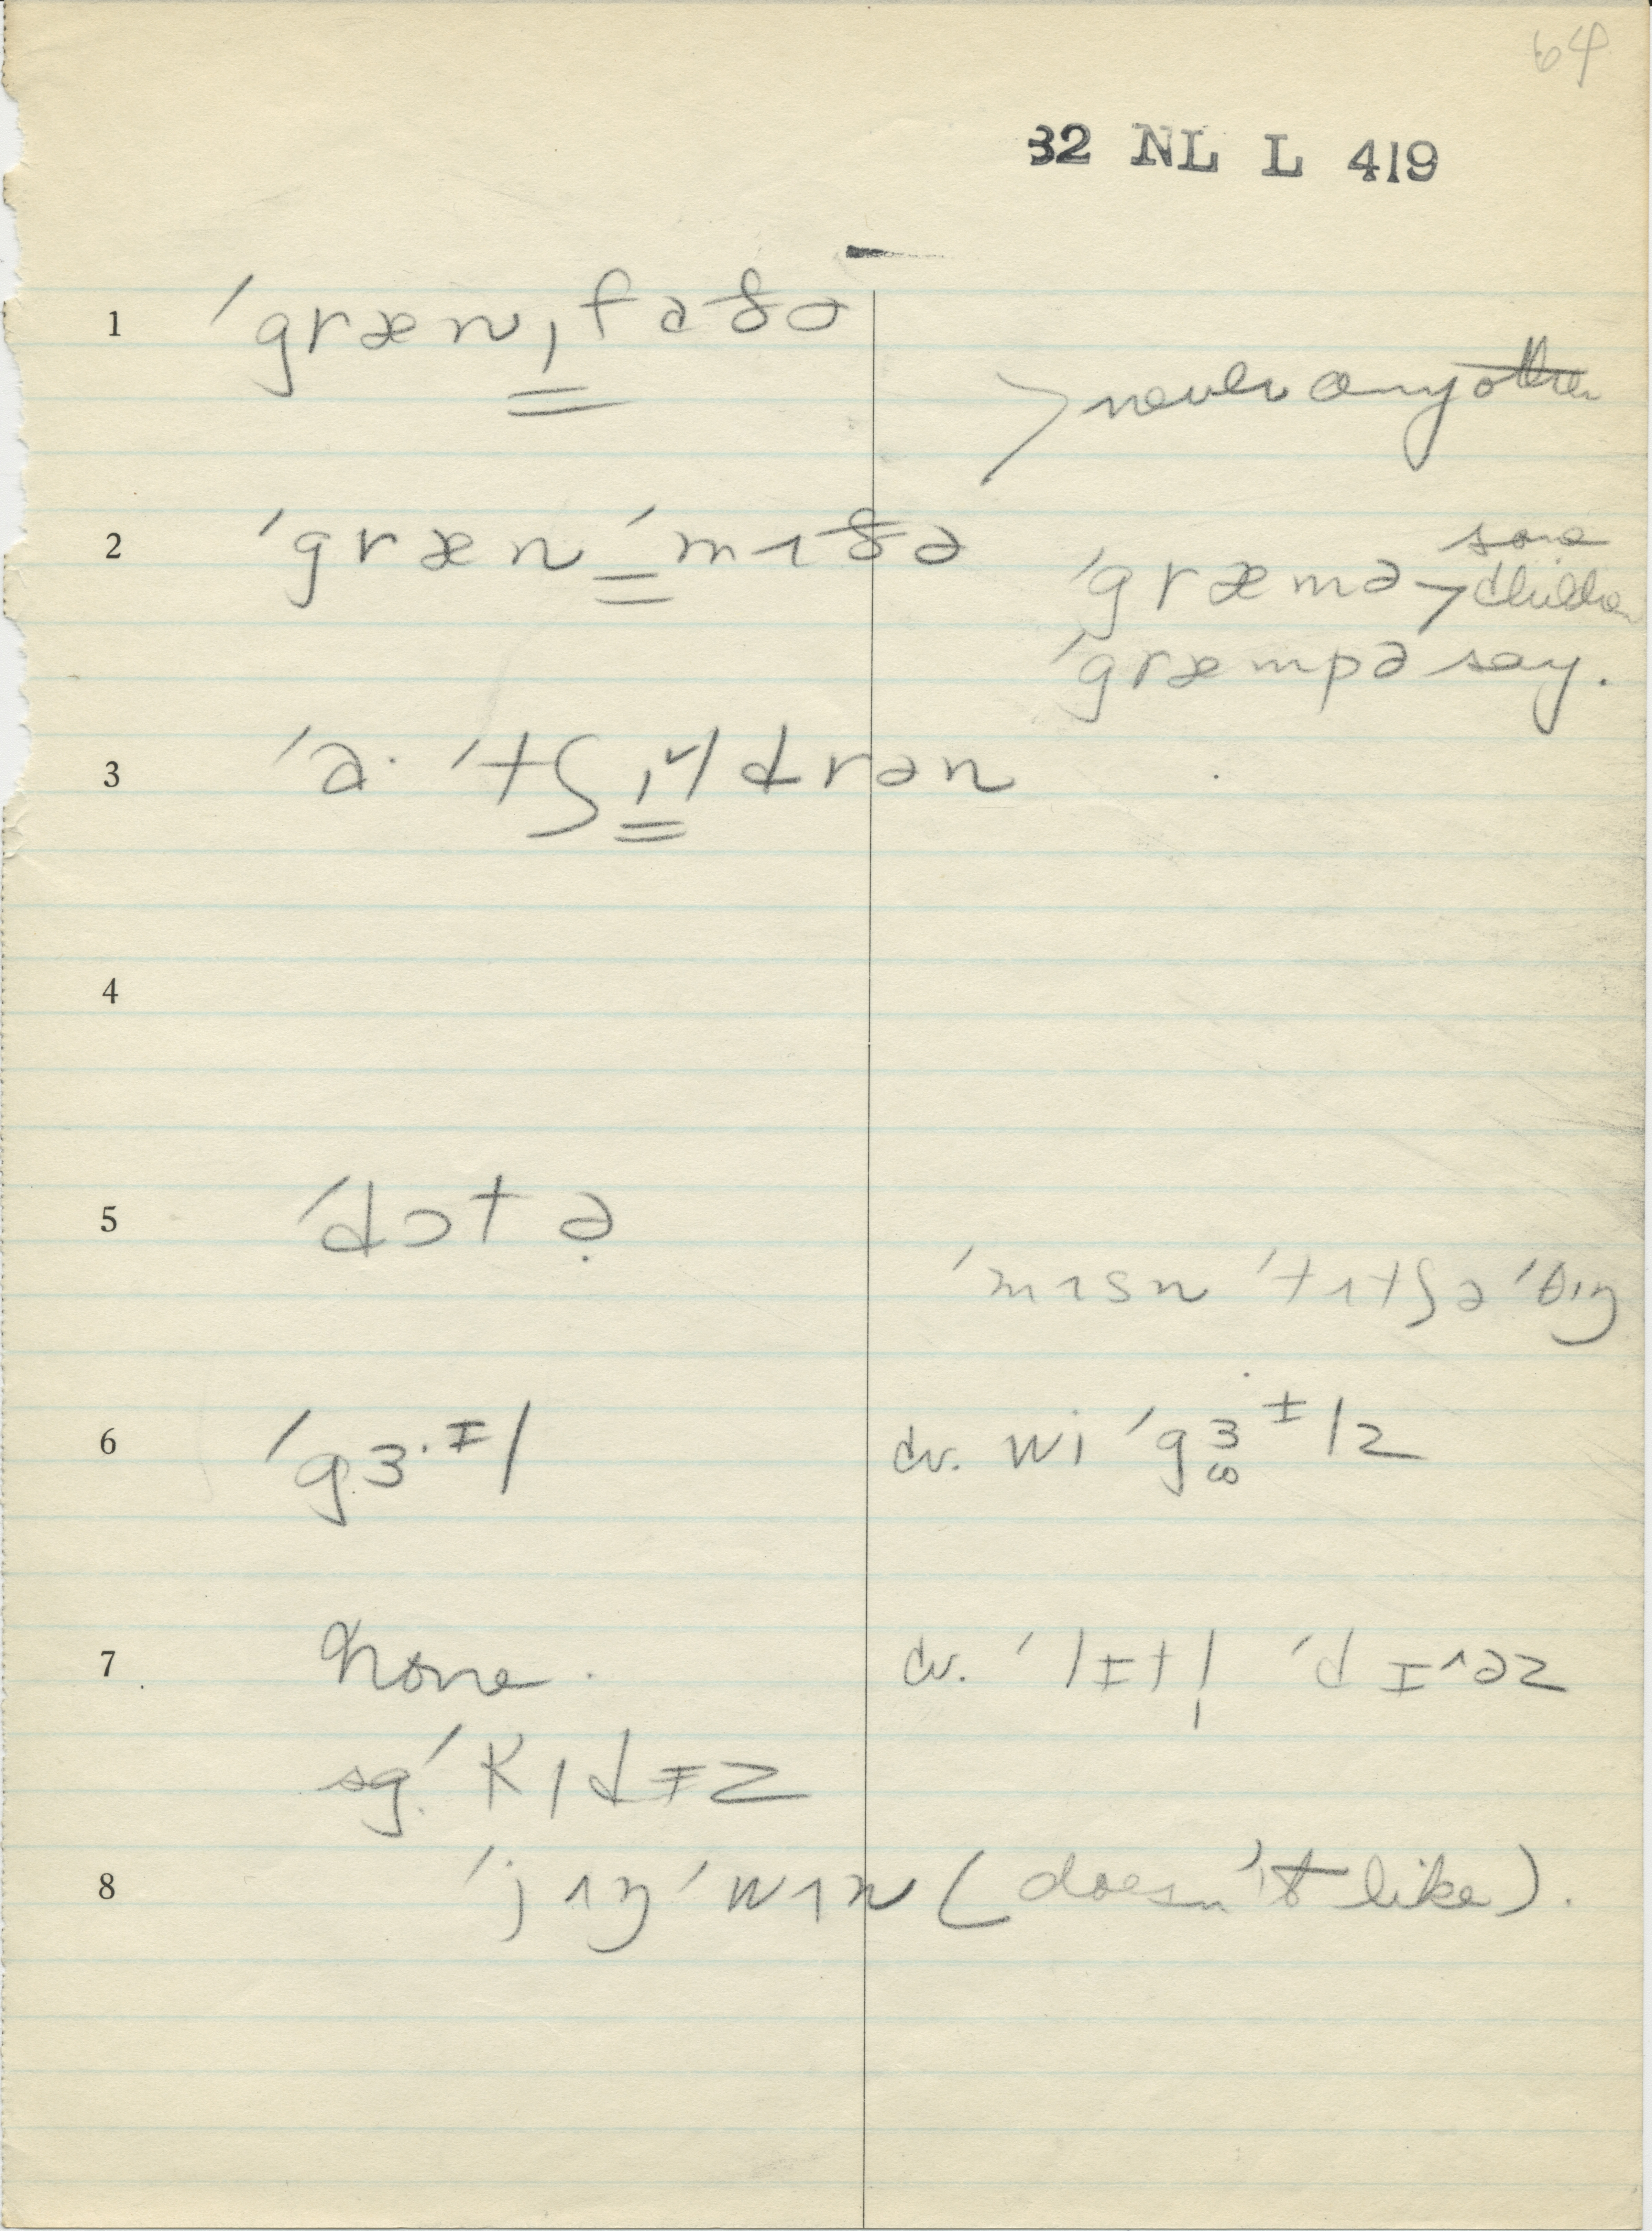 64
32 NL L 419
1 ˈgræn͇ˌfaðə
> never any other
2 ˈgræn͇ˈmɿðə
ˈgræmə > some children
ˈgræmpə say.
3 ˈa· ˈtʃɪldrən
5 ˈdɔtə̣
ˈmɿsn ˈtɿtʃə ˈðɪŋ
6 ˈgɜ·ᵻl
cv. wi ˈgɜᵻlz
7 None.
cv. ˈlᵻtl̩ ˈdɪ^əz
sg. ˈkɪdᵻz
8 ˈjʌŋ ˈwʌn (doesn't like).